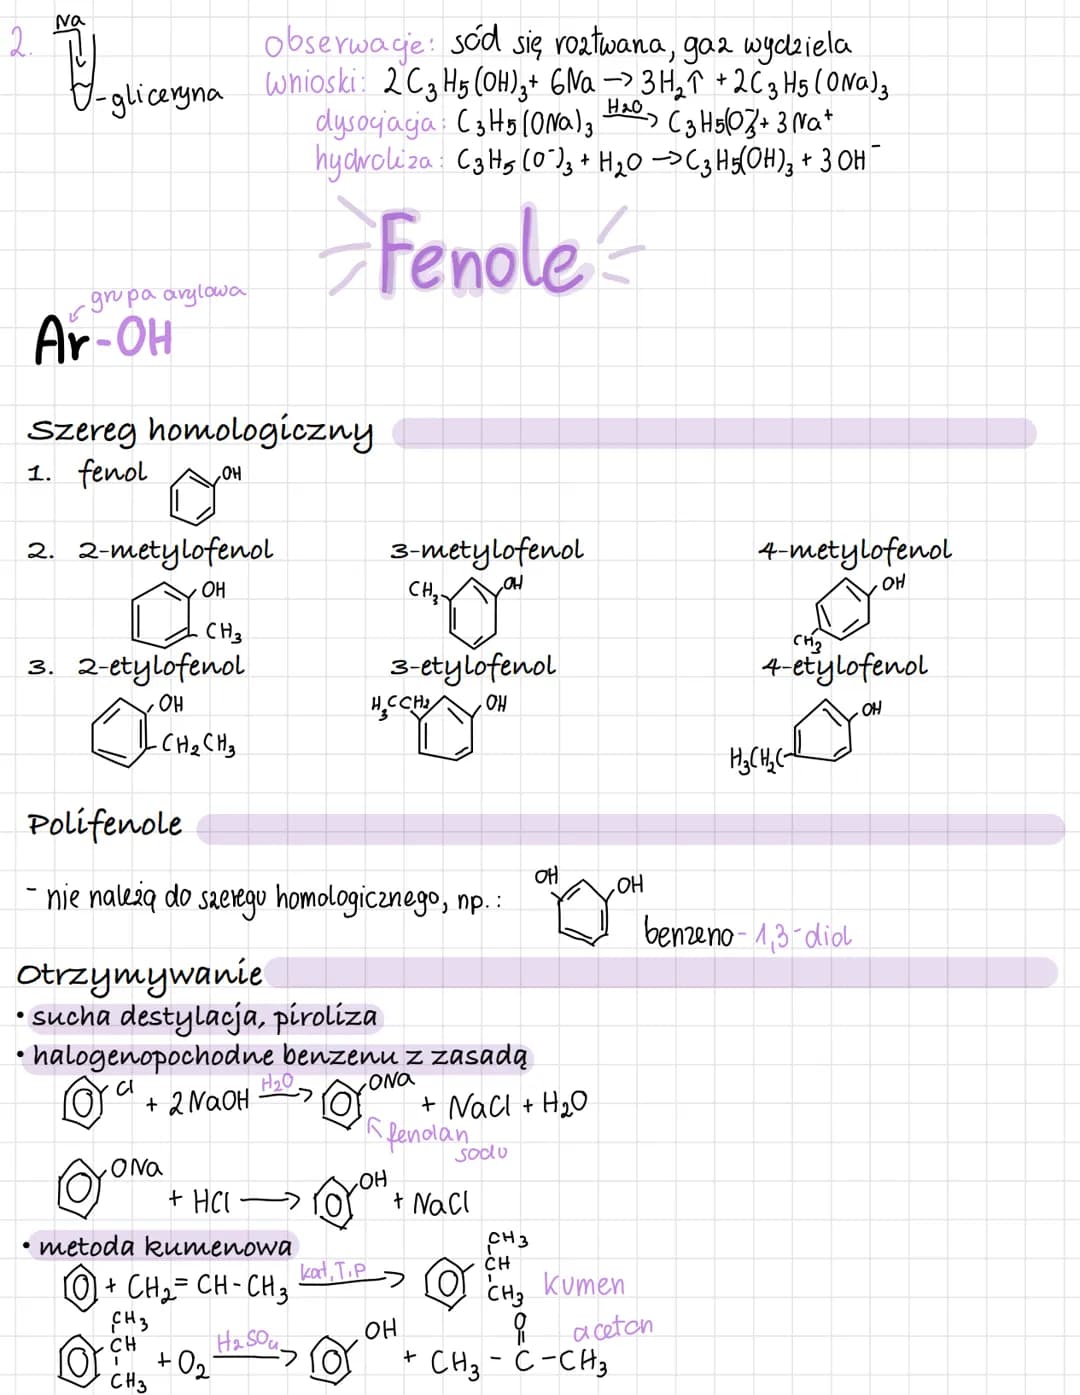 2. Na
-gliceryna
obserwacje: sód się roztwarza, gaz wydziela
wnioski: 2C₃H₅(OH)₃ + 6Na → 3H₂↑ + 2C₃H₅(ONa)₃
dysocjacja: C₃H₅(ONa)₃ H₂O→ C₃H₅(O⁻)₃ + 3Na⁺
hydroliza: C₃H₅(O⁻)₃ + H₂O → C₃H₅(OH)₃ + 3OH⁻
Fenole
grupa arylowa
Ar-OH
Szereg homologiczny
1. fenol
OH
2. 2-metylofenol 3-metylofenol 4-metylofenol
OH CH₃ CH₃ OH OH CH₃
3. 2-etylofenol 3-etylofenol 4-etylofenol
OH CH₂CH₃ H₃CCH₂ OH OH H₃CH₂C
Polifenole
OH OH
- nie należą do szeregu homologicznego, np.:
benzeno-1,3-diol
Otrzymywanie
• sucha destylacja, piroliza
• halogenopochodne benzenu z zasadą
Cl + 2NaOH H₂O→ ONa + NaCl + H₂O
fenolan sodu
ONa + HCl → OH + NaCl
• metoda kumenowa
+ CH₂=CH-CH₃ kat,T,P→ CH₃ CH CH₃ kumen
CH₃ CH CH₃ + O₂ H₂SO₄→ OH + CH₃-C-CH₃ O aceton